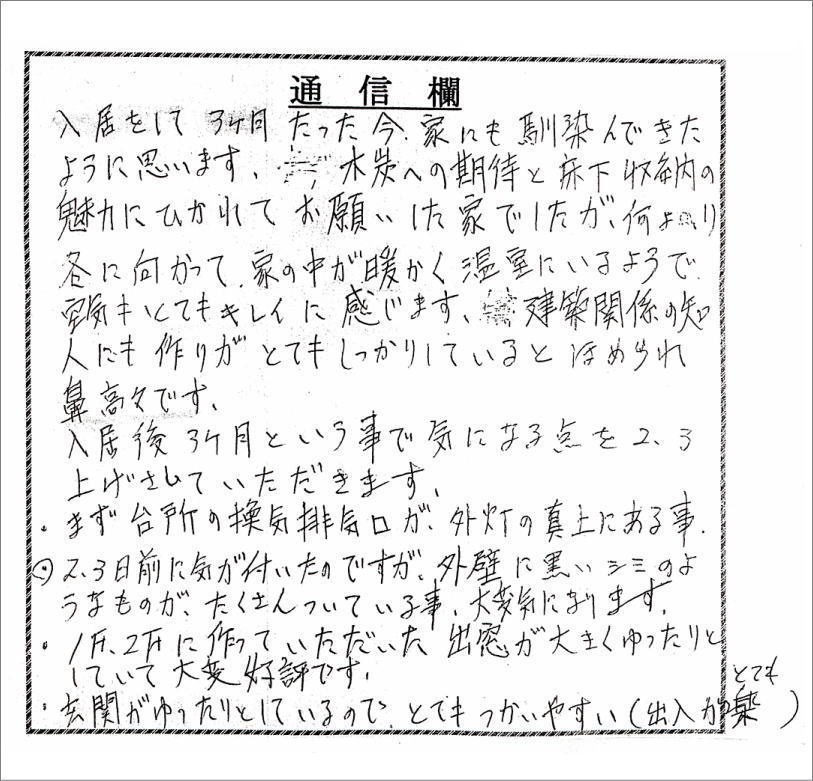 通信欄
入居をして 3ヶ月 たった今、家にも 馴染んできた
ように思います。木炭への期待と 床下収納の
魅力にひかれて お願いした家でしたが、何より
冬に向かって、家の中が暖かく 温室にいるようで
空気もとてもキレイに 感じます。建築関係の知
人にも 作りが とてもしっかりしていると ほめられ
鼻高々です。
入居後 3ヶ月という事で 気になる点を 2、3
上げさせていただきます。
・まず 台所の換気排気口が、外灯の真上にある事。
・2、3日前に気が付いたのですが、外壁に黒いシミのよ
うなものが、たくさんついている事、大変気になります。
・1F、2Fに作っていただいた 出窓が大きくゆったりと
していて 大変 好評です。
・玄関がゆったりとしているので、とてもつかいやすい(出入が とても楽)